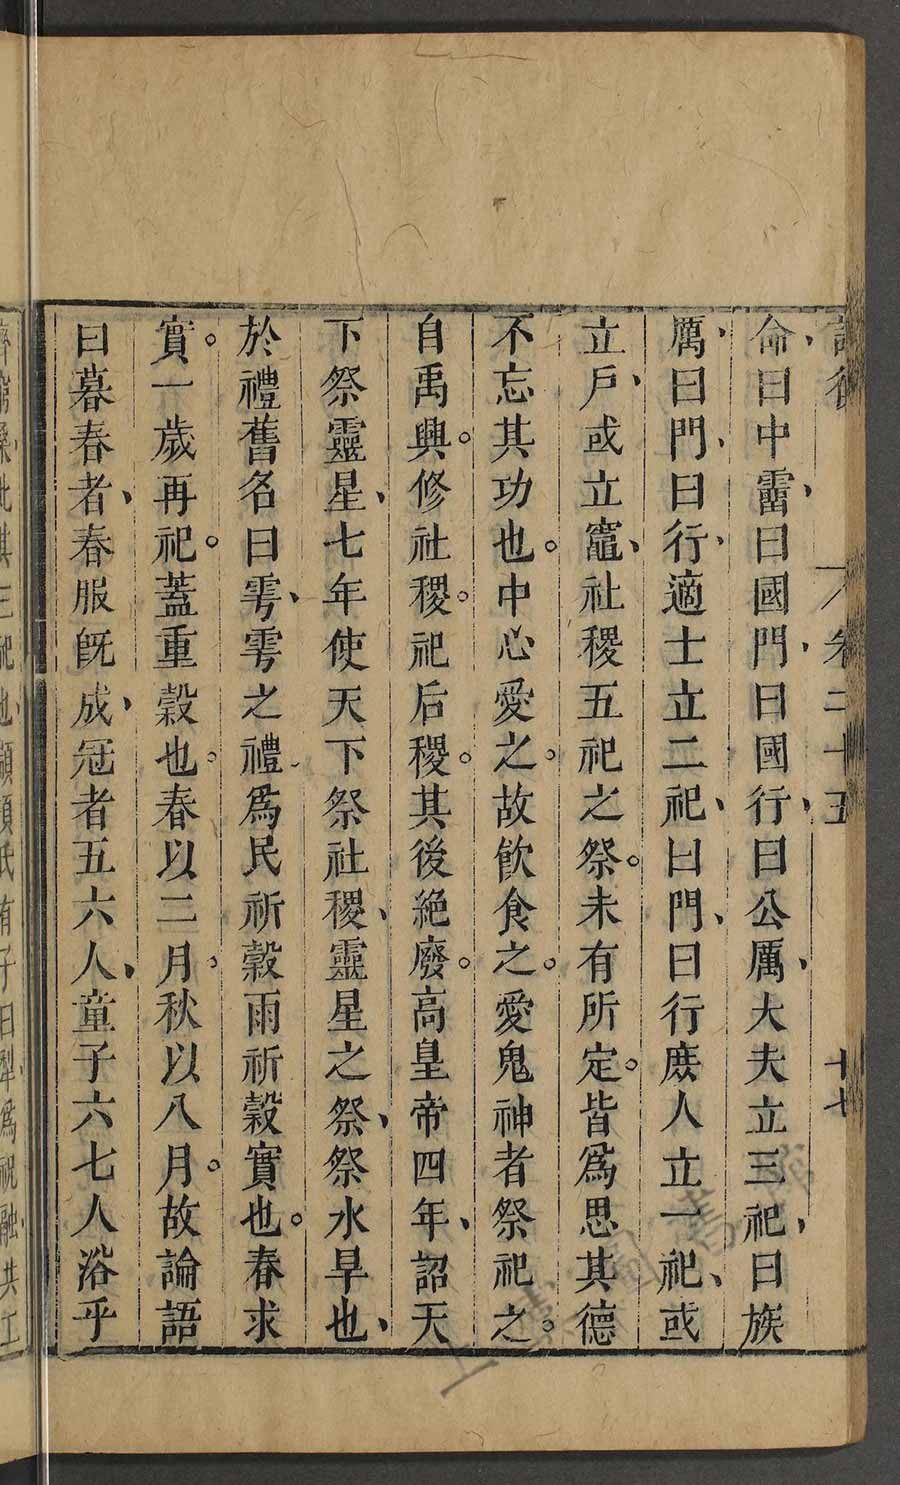 卷二十五
十七
命曰中霤曰國門曰國行曰公厲大夫立三祀曰族
厲曰門曰行適士立二祀曰門曰行庶人立一祀或
立戶或立竈社稷五祀之祭未有所定皆爲思其德
不忘其功也中心愛之故飲食之愛鬼神者祭祀之
自禹興修社稷祀后稷其後絶廢高皇帝四年詔天
下祭靈星七年使天下祭社稷靈星之祭祭水旱也
於禮舊名曰雩雩之禮爲民祈穀雨祈穀實也春求
實一歲再祀蓋重穀也春以二月秋以八月故論語
曰暮春者春服旣成冠者五六人童子六七人浴乎